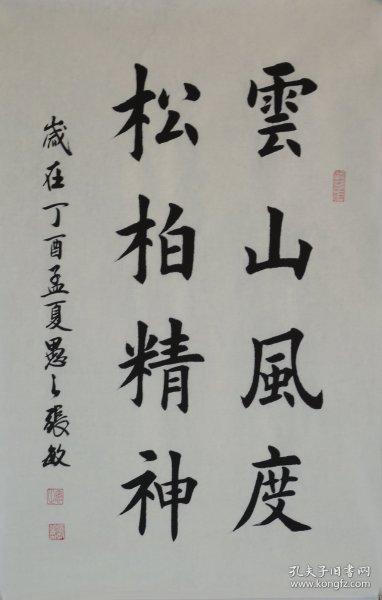 雲山風度
松柏精神
歲在丁酉孟夏愚之張敏
孔夫子旧书网
www.kongfz.com